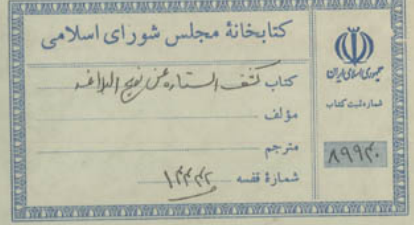 کتابخانهٔ مجلس شورای اسلامی
کتاب کشف الستاره عن نهج البلاغه
مؤلف
مترجم
شمارهٔ قفسه ۱۲۴۴۲
جمهوری اسلامی ایران
شماره ثبت کتاب
۸۹۹۴۰